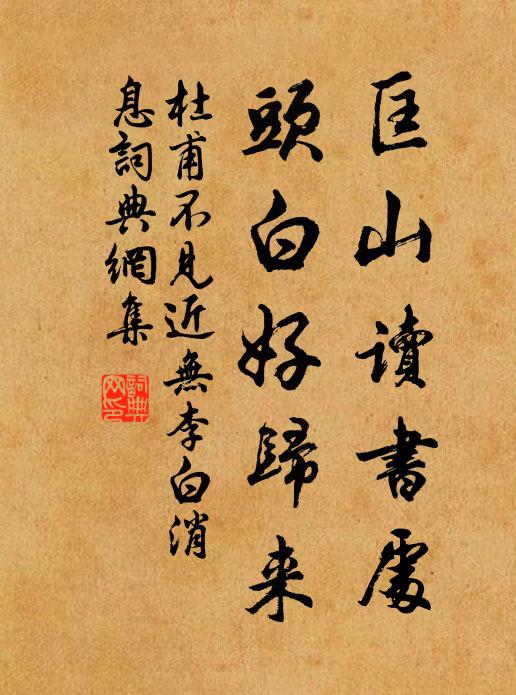 匡山讀書處
頭白好歸来
杜甫不見近無李白消
息詞典網集
詞典
网印